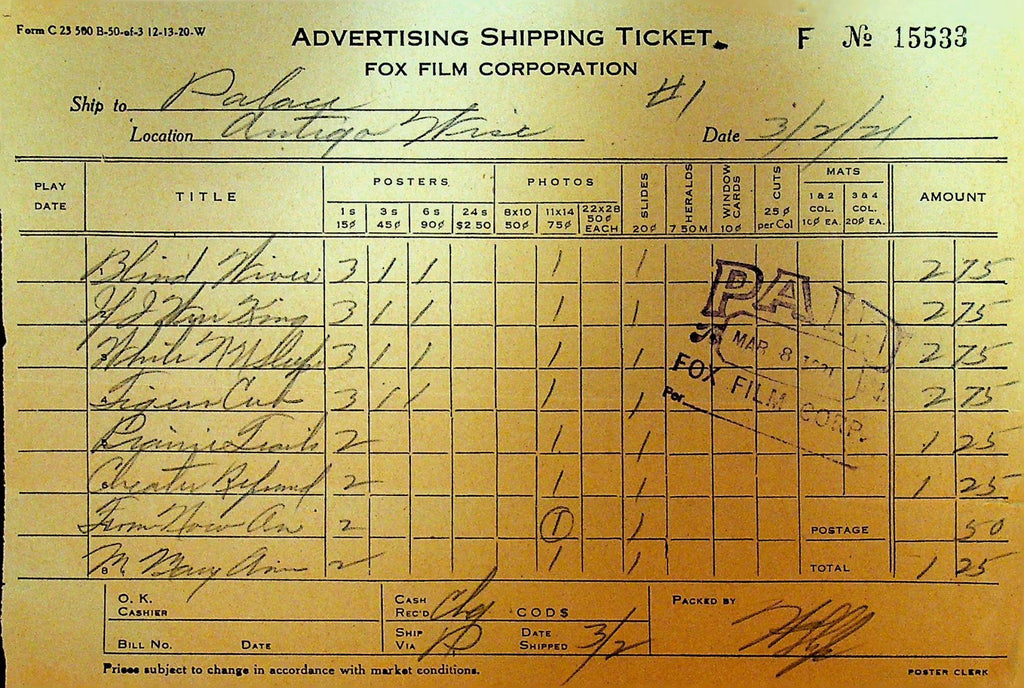 Form C 23 500 B-50-of-3 12-13-20-W
ADVERTISING SHIPPING TICKET F № 15533
FOX FILM CORPORATION
Ship to Palace #1
Location Antigo Wisc Date 3/2/21
PLAY DATE TITLE POSTERS PHOTOS SLIDES HERALDS WINDOW CARDS CUTS MATS AMOUNT
1 s 15¢ 3 s 45¢ 6 s 90¢ 24 s $2 50 8x10 50¢ 11x14 75¢ 22x28 50¢ EACH 20¢ 7 50 M 10¢ 25¢ per Col 1 & 2 COL. 10¢ EA. 3 & 4 COL. 20¢ EA.
Blind Wives 3 1 1 1 1 2 75
If I Were King 3 1 1 1 1 2 75
While N Y Sleeps 3 1 1 1 1 2 75
Tigers Cub 3 1 1 1 1 2 75
Prairie Trails 2 1 1 1 25
Cheater Reformed 2 1 1 1 25
From Now On 2 1 1 POSTAGE 50
2 1 1 TOTAL 1 25
PAID
MAR 8 1921
FOX FILM CORP.
Per
O. K. CASHIER CASH REC'D Chg CODS PACKED BY
BILL NO. DATE SHIP VIA DATE SHIPPED 3/2
Prices subject to change in accordance with market conditions. POSTER CLERK